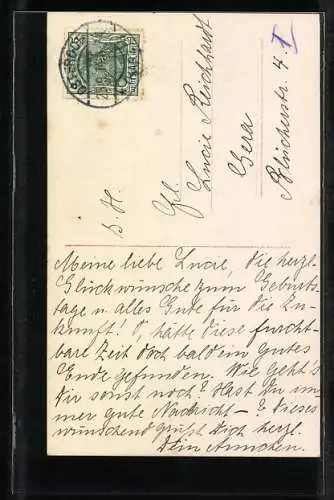 s. H.
Frl.
Lucie Reichhardt
Gera
Blücherstr. 4. I
Meine liebe Lucie, die herzl.
Glückwünsche zum Geburts-
tage u. alles Gute für die Zu-
kunft! O, hätte diese furcht-
bare Zeit doch bald ein gutes
Ende gefunden. Wie geht's
Dir sonst noch? Hast Du im-
mer gute Nachricht – ? Dieses
wünschend grüßt Dich herzl.
Dein Annchen.